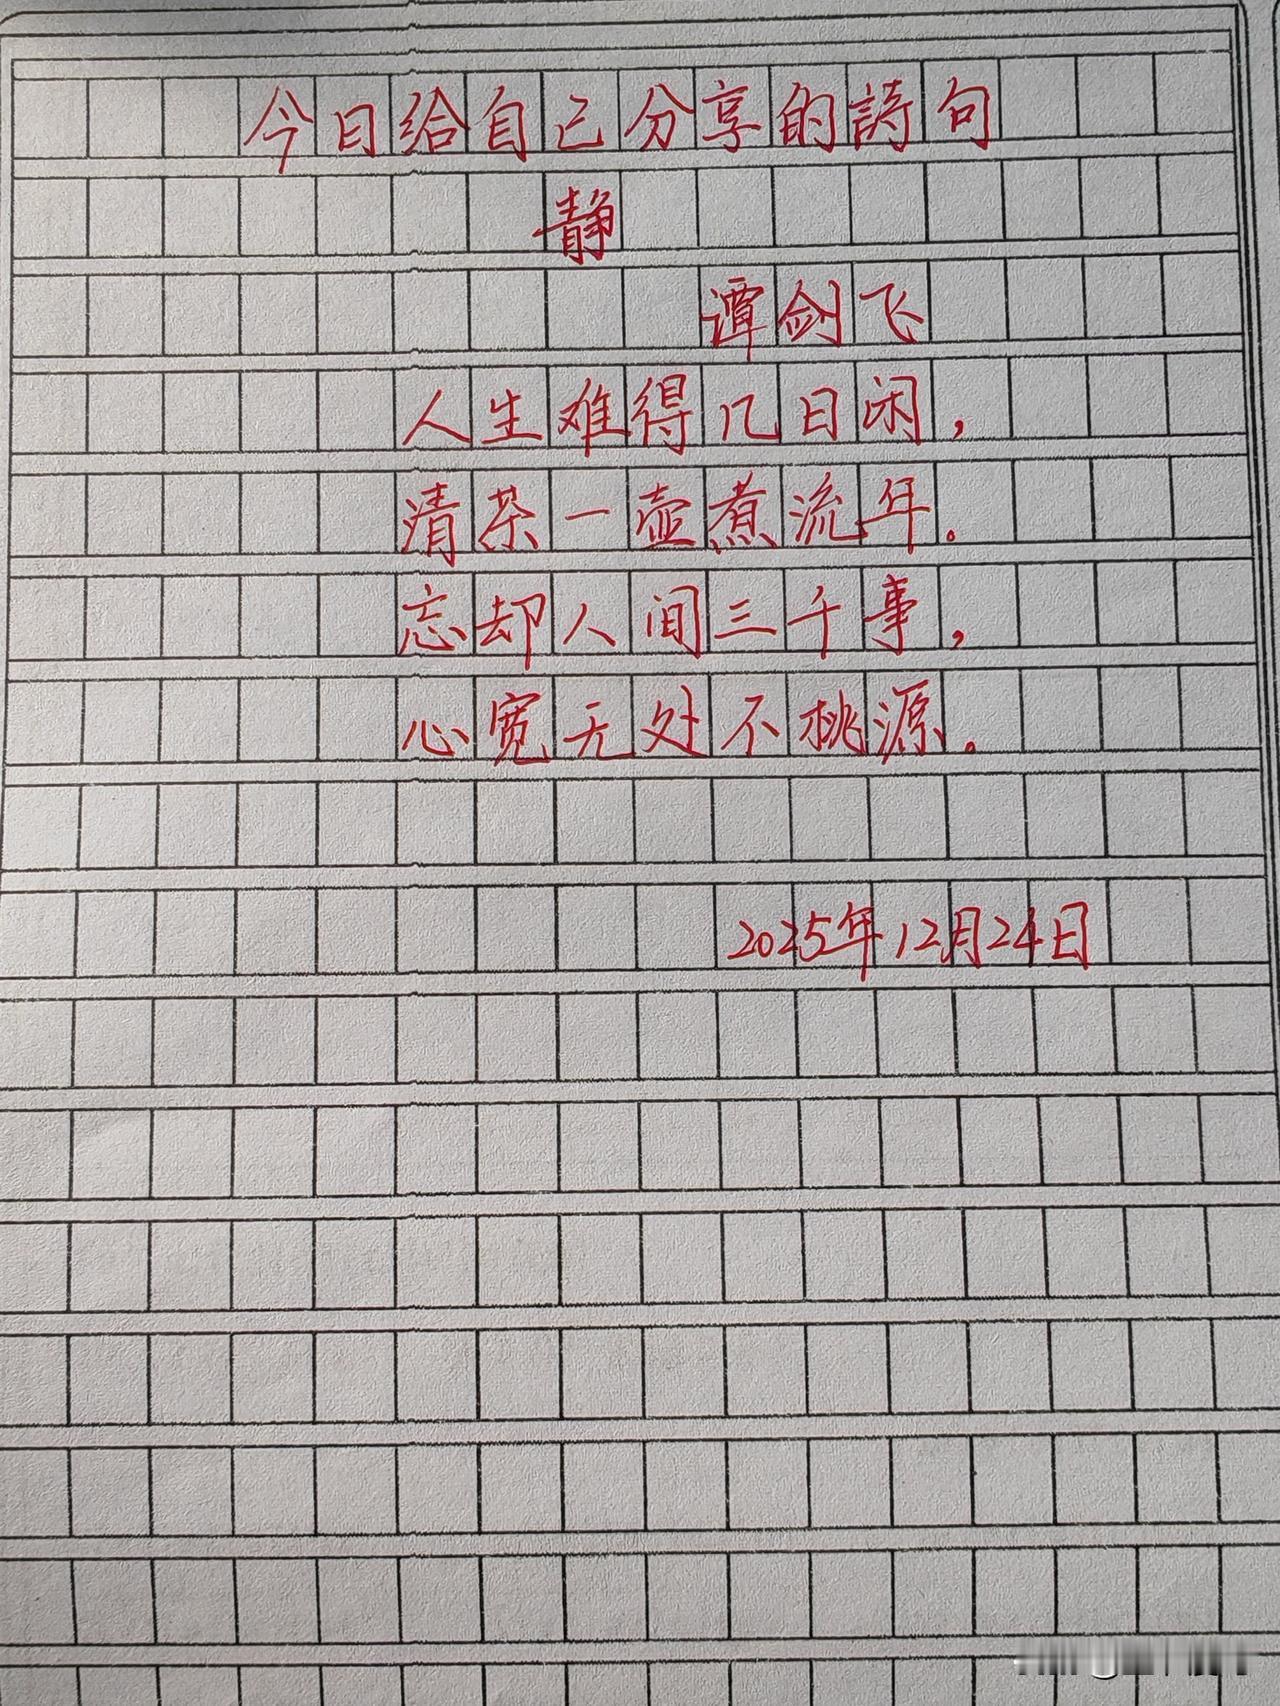 今日给自己分享的詩句
静
谭剑飞
人生难得几日闲，
清茶一壶煮流年。
忘却人间三千事，
心宽无处不桃源。
2025年12月24日